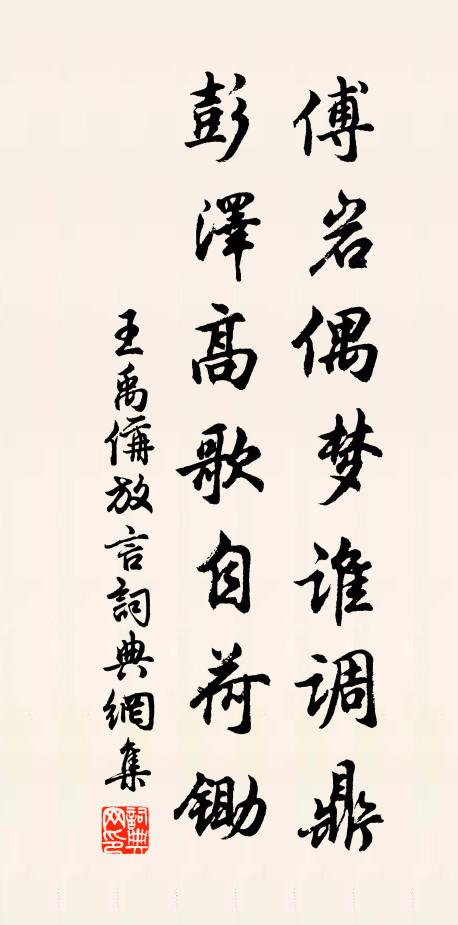 傅岩偶梦谁调鼎
彭澤高歌自荷锄
王禹偁放言詞典網集
詞典网印